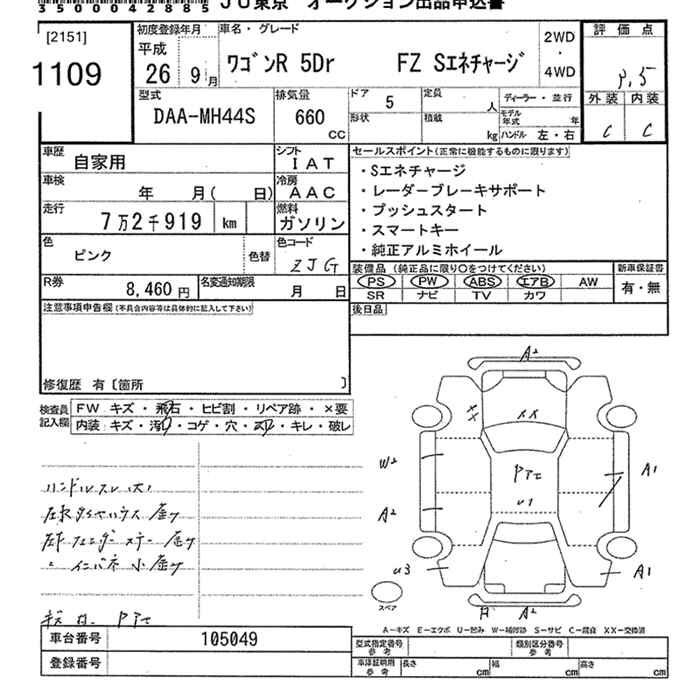 35000042885 JU東京 オークション出品申込書
[2151]
1109
初度登録年月
平成
26 9月
車名・グレード
ワゴンR 5Dr FZ Sエネチャージ
2WD
・
4WD
評価点
外装 内装
C C
型式
DAA-MH44S
排気量
660
CC
ドア 5
形状
定員 人
積載 kg
ディーラー・並行
モデル年式 年
ハンドル 左・右
車歴
自家用
シフト
IAT
車検
年 月( 日)
冷房
AAC
走行
7万2千919 km
燃料
ガソリン
色
ピンク
色替
色コード
ZJG
R券
8,460円
名変通知期限
月 日
セールスポイント(正常に機能するものに限ります)
・Sエネチャージ
・レーダーブレーキサポート
・プッシュスタート
・スマートキー
・純正アルミホイール
装備品(純正品に限り○をつけてください)
新車保証書
PS PW ABS エアB AW
有・無
SR ナビ TV カワ
後日品
注意事項申告欄(不具合内容等は具体的に記入して下さい)
修復歴 有〔箇所 〕
検査員
記入欄
FW キズ・飛石・ヒビ割・リペア跡・×要
内装・キズ・汚れ・コゲ・穴・スレ・キレ・破レ
ハンドルスレ 大
A2
XX
XX
W2
Pたて
A1
U1
A2
U3
A1
A2
スペア
A-キズ E-エクボ U-凹み W-補修跡 S-サビ C-腐食 XX-交換済
車台番号
105049
登録番号
型式指定番号
参考
類別区分番号
参考
車庫証明用
参考
長さ cm
幅 cm
高さ cm